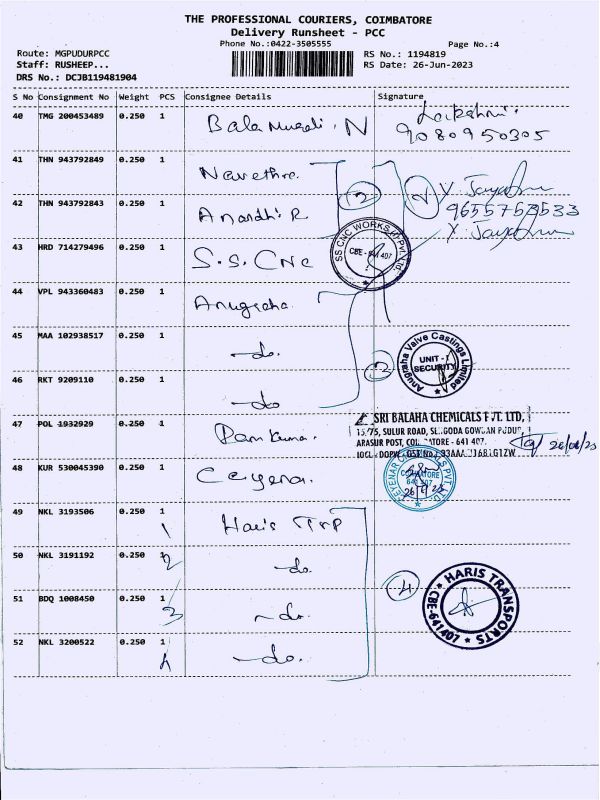 THE PROFESSIONAL COURIERS, COIMBATORE
Delivery Runsheet - PCC
Phone No.:0422-3505555
Page No.:4
Route: MGPUDURPCC
RS No.: 1194819
Staff: RUSHEEP...
RS Date: 26-Jun-2023
DRS No.: DCJB119481904
S No Consignment No Weight PCS Consignee Details Signature
40 TMG 200453489 0.250 1 Bala Murali. N Lakshmi
9080950305
41 THN 943792849 0.250 1
42 THN 943792843 0.250 1 Anandhi R 2 9655753533
43 HRD 714279496 0.250 1 S.S. CNC
SS CNC WORKS (P) Ltd.
CBE - 641 407
44 VPL 943360483 0.250 1 Anugraha
45 MAA 102938517 0.250 1 -do.
Anugraha Valve Castings Limited
UNIT - I
SECURITY
3
46 RKT 9209110 0.250 1 -do
47 POL 1932929 0.250 1 Ram Kumar.
SRI BALAHA CHEMICALS PVT. LTD,
15/75, SULUR ROAD,
ARASUR POST, - 641 407.
26/06/23
48 KUR 530045390 0.250 1
49 NKL 3193506 0.250 1 Haris Trp
1
50 NKL 3191192 0.250 1 -do.
2
51 BDQ 1008450 0.250 1 -do.
3
4
HARIS TRANSPORTS
CBE-641407
52 NKL 3200522 0.250 1 -do.
4